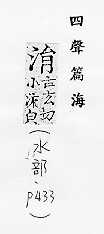 四聲篇海
㳙古玄切小流皃(水部.p433)